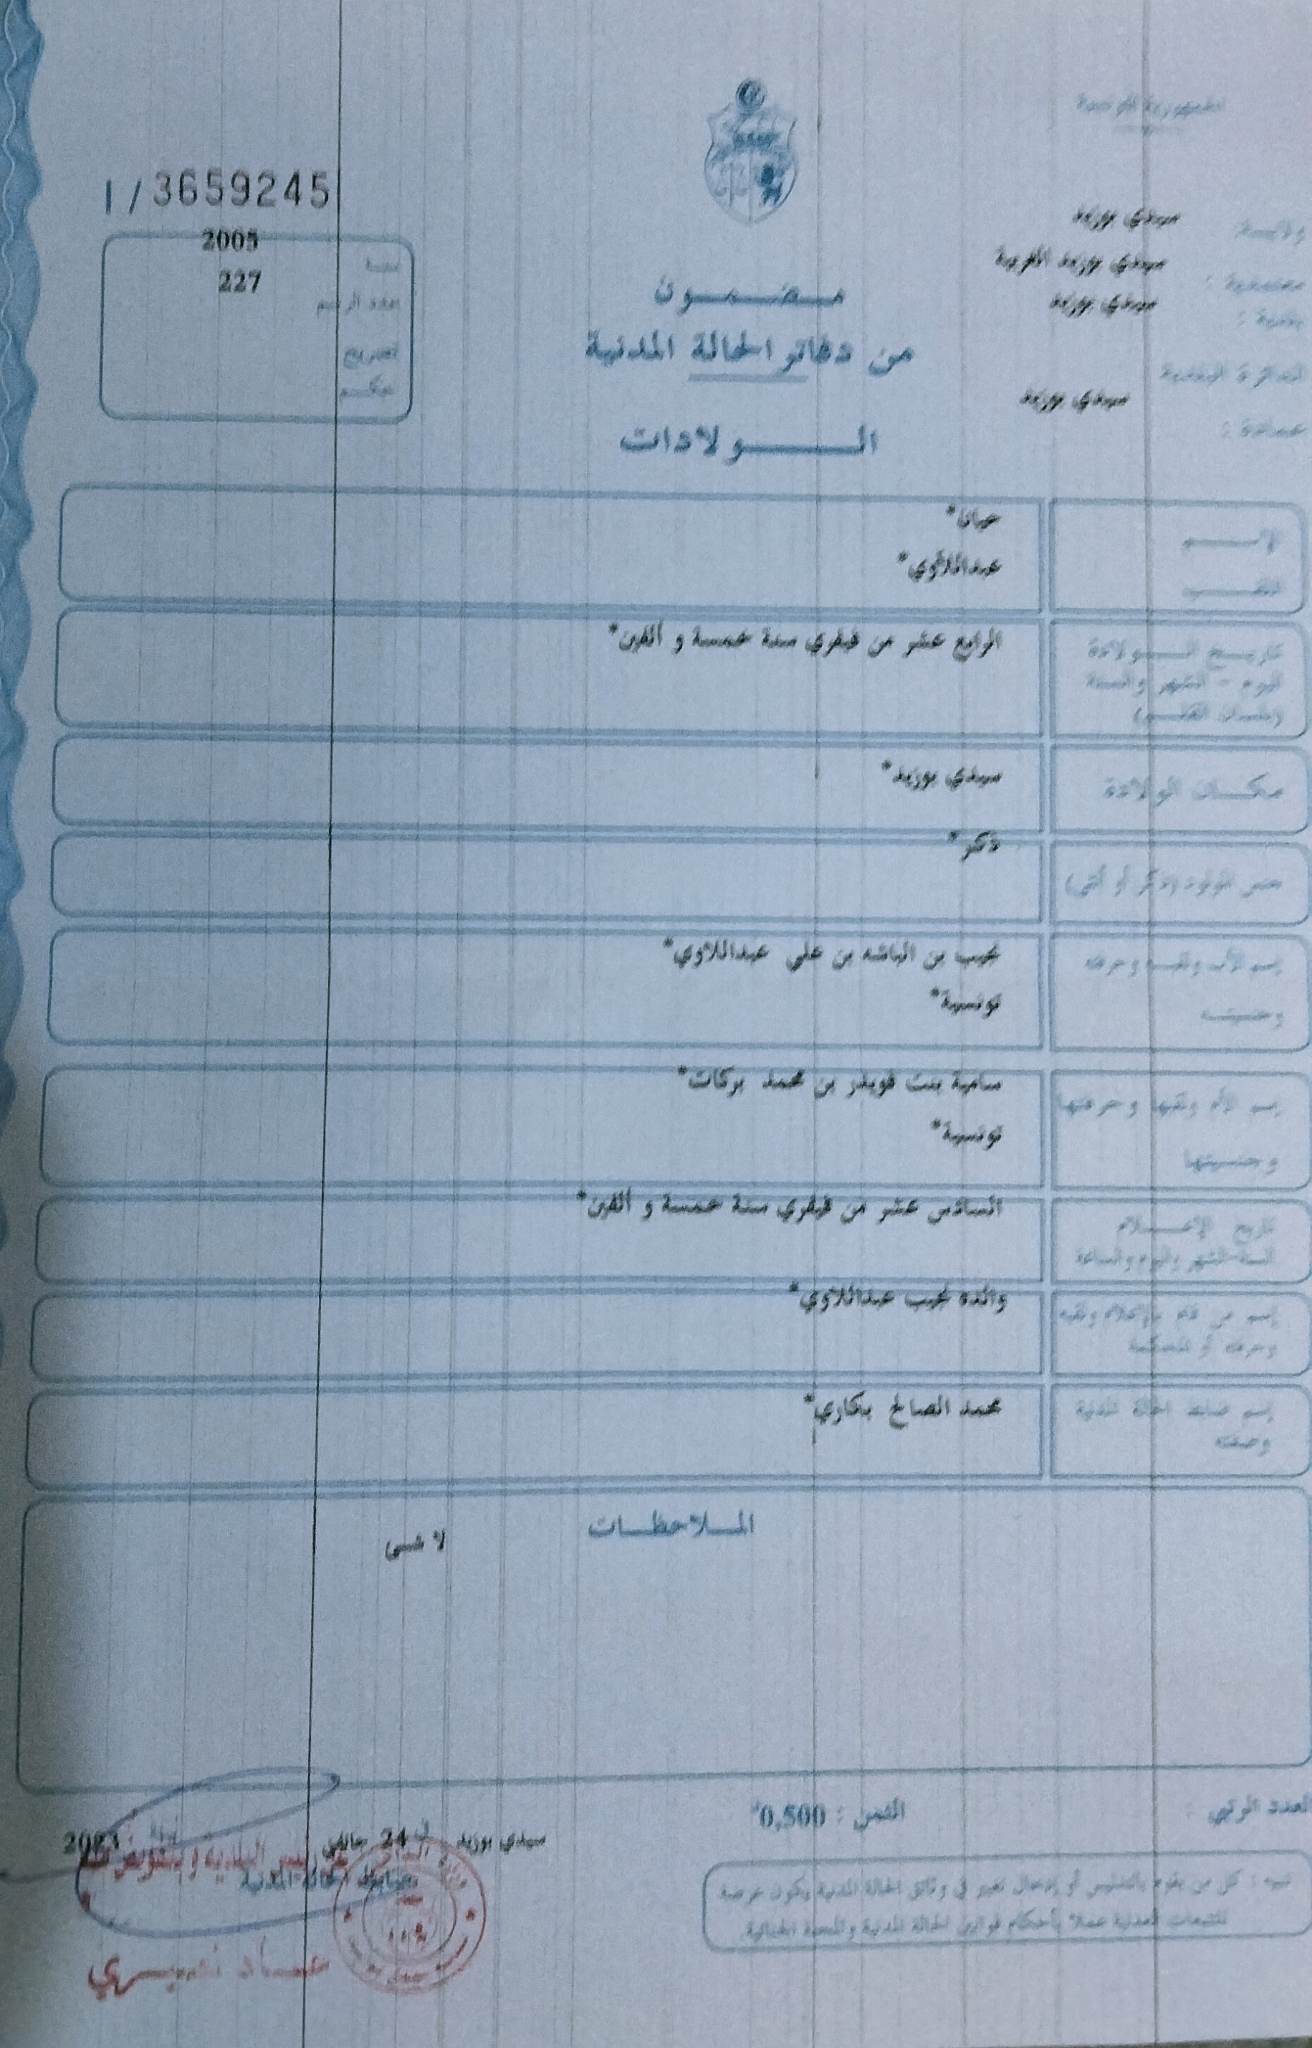 الجمهورية التونسية
1/3659245
ولايـــة سيدي بوزيد
معتمدية : سيدي بوزيد الغربية
بلدية : سيدي بوزيد
الدائرة البلدية
عمادة : سيدي بوزيد
سنة 2005
عدد الرسم 227
تصريح
حكـم
مـضـمـون
من دفاتر الحالة المدنية
الـــولادات
الإســـم
*
اللقـــب
عبداللاوي*
تاريـخ الــولادة
اليوم - الشهر والسنة
(بلسان القلـم)
الرابع عشر من فيفري سنة خمسة و ألفين*
مكــان الولادة
سيدي بوزيد*
جنس المولود (ذكر أو أنثى)
ذكر*
إسم الأب ولقبه وحرفته
نجيب بن الباشه بن علي عبداللاوي*
وجنسيته
تونسية*
إسم الأم ولقبها وحرفتها
سامية بنت قويدر بن محمد بركات*
وجنسيتها
تونسية*
تاريخ الإعــلام
السنة-الشهر واليوم والساعة
السادس عشر من فيفري سنة خمسة و ألفين*
إسم من قام بالإعلام ولقبه
وحرفته أو المحكمة
والده نجيب عبداللاوي*
إسم ضابط الحالة المدنية
وصفته
محمد الصالح بكاري*
المـلاحظـات
لا شـى
العدد الرتبي :
الثمن : 0,500د
سيدي بوزيد في 24 جانفي
ضابط الحالة المدنية
عن رئيس البلدية وبتفويض منه
عمـاد نصيـري
تنبيه : كل من يقوم بالتدليس أو إدخال تغيير في وثائق الحالة المدنية يكون عرضة
للتتبعات العدلية عملا بأحكام قوانين الحالة المدنية والمجلة الجنائية